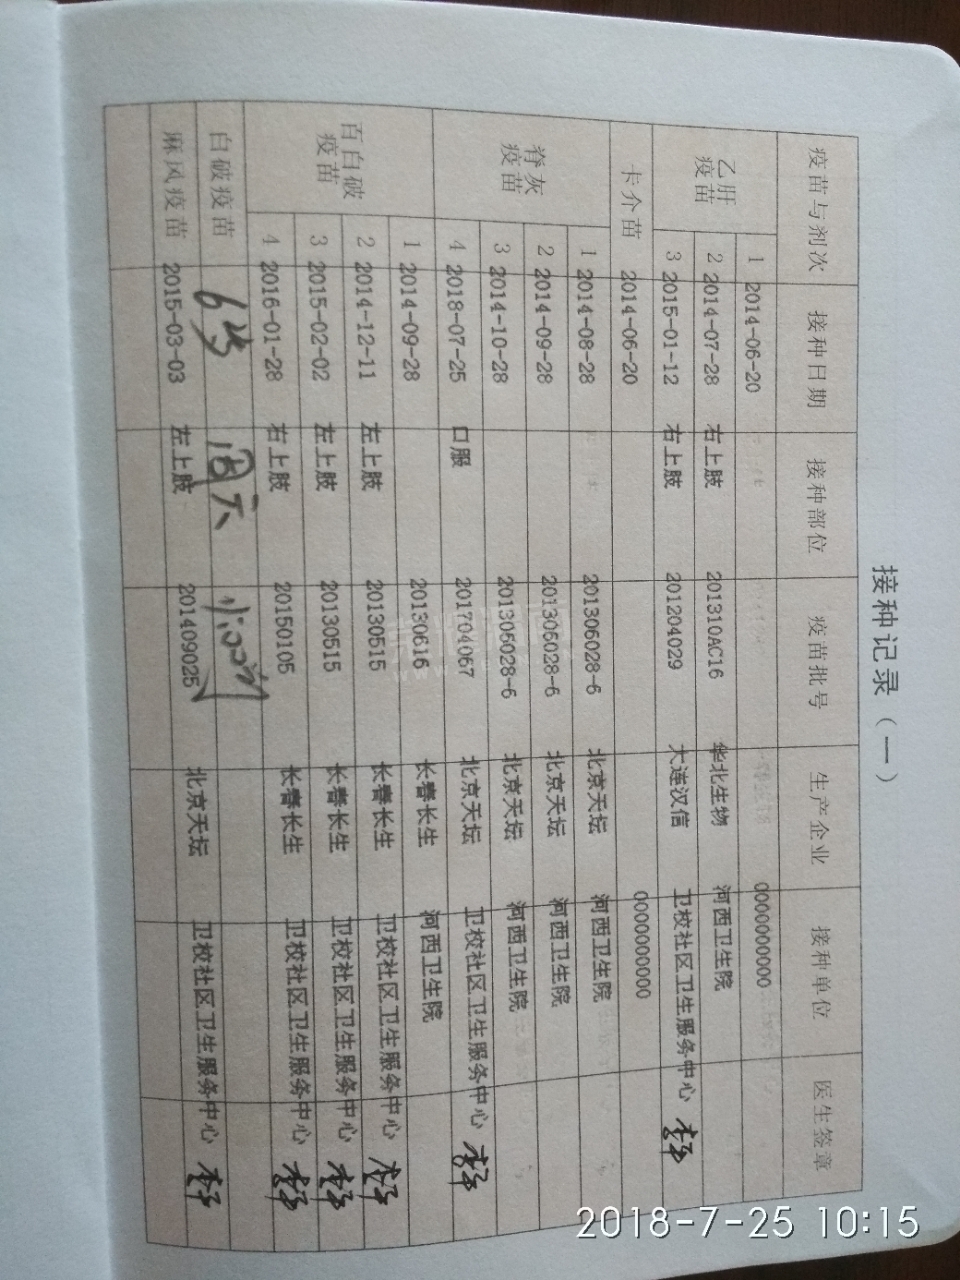 接种记录（一）
疫苗与剂次 接种日期 接种部位 疫苗批号 生产企业 接种单位 医生签章
乙肝疫苗 1 2014-06-20 0000000000
2 2014-07-28 右上肢 201310AC16 华北生物 河西卫生院
3 2015-01-12 右上肢 201204029 大连汉信 卫校社区卫生服务中心
卡介苗 2014-06-20 0000000000
脊灰疫苗 1 2014-08-28 201306028-6 北京天坛 河西卫生院
2 2014-09-28 201306028-6 北京天坛 河西卫生院
3 2014-10-28 201306028-6 北京天坛 河西卫生院
4 2018-07-25 口服 201704067 北京天坛 卫校社区卫生服务中心
百白破疫苗 1 2014-09-28 20130616 长春长生 河西卫生院
2 2014-12-11 左上肢 20130515 长春长生 卫校社区卫生服务中心
3 2015-02-02 左上肢 20130515 长春长生 卫校社区卫生服务中心
4 2016-01-28 右上肢 20150105 长春长生 卫校社区卫生服务中心
白破疫苗 6岁 周六
麻风疫苗 2015-03-03 左上肢 201409025 北京天坛 卫校社区卫生服务中心
2018-7-25 10:15